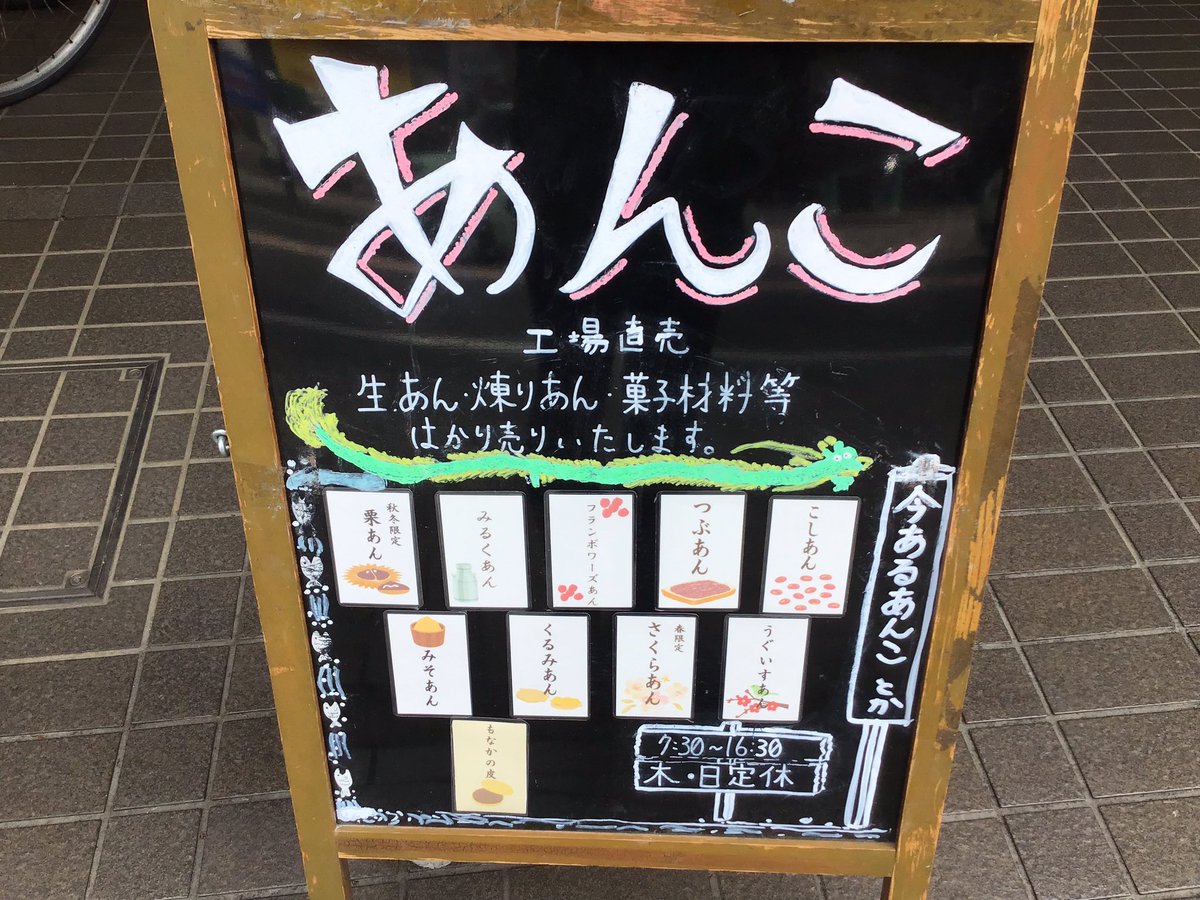 あんこ
工場直売
生あん・煉りあん・菓子材料等
はかり売りいたします。
今あるあんことか
こしあん
つぶあん
フランボワーズあん
みるくあん
秋冬限定
栗あん
うぐいすあん
春限定
さくらあん
くるみあん
みそあん
もなかの皮
7:30～16:30
木・日定休